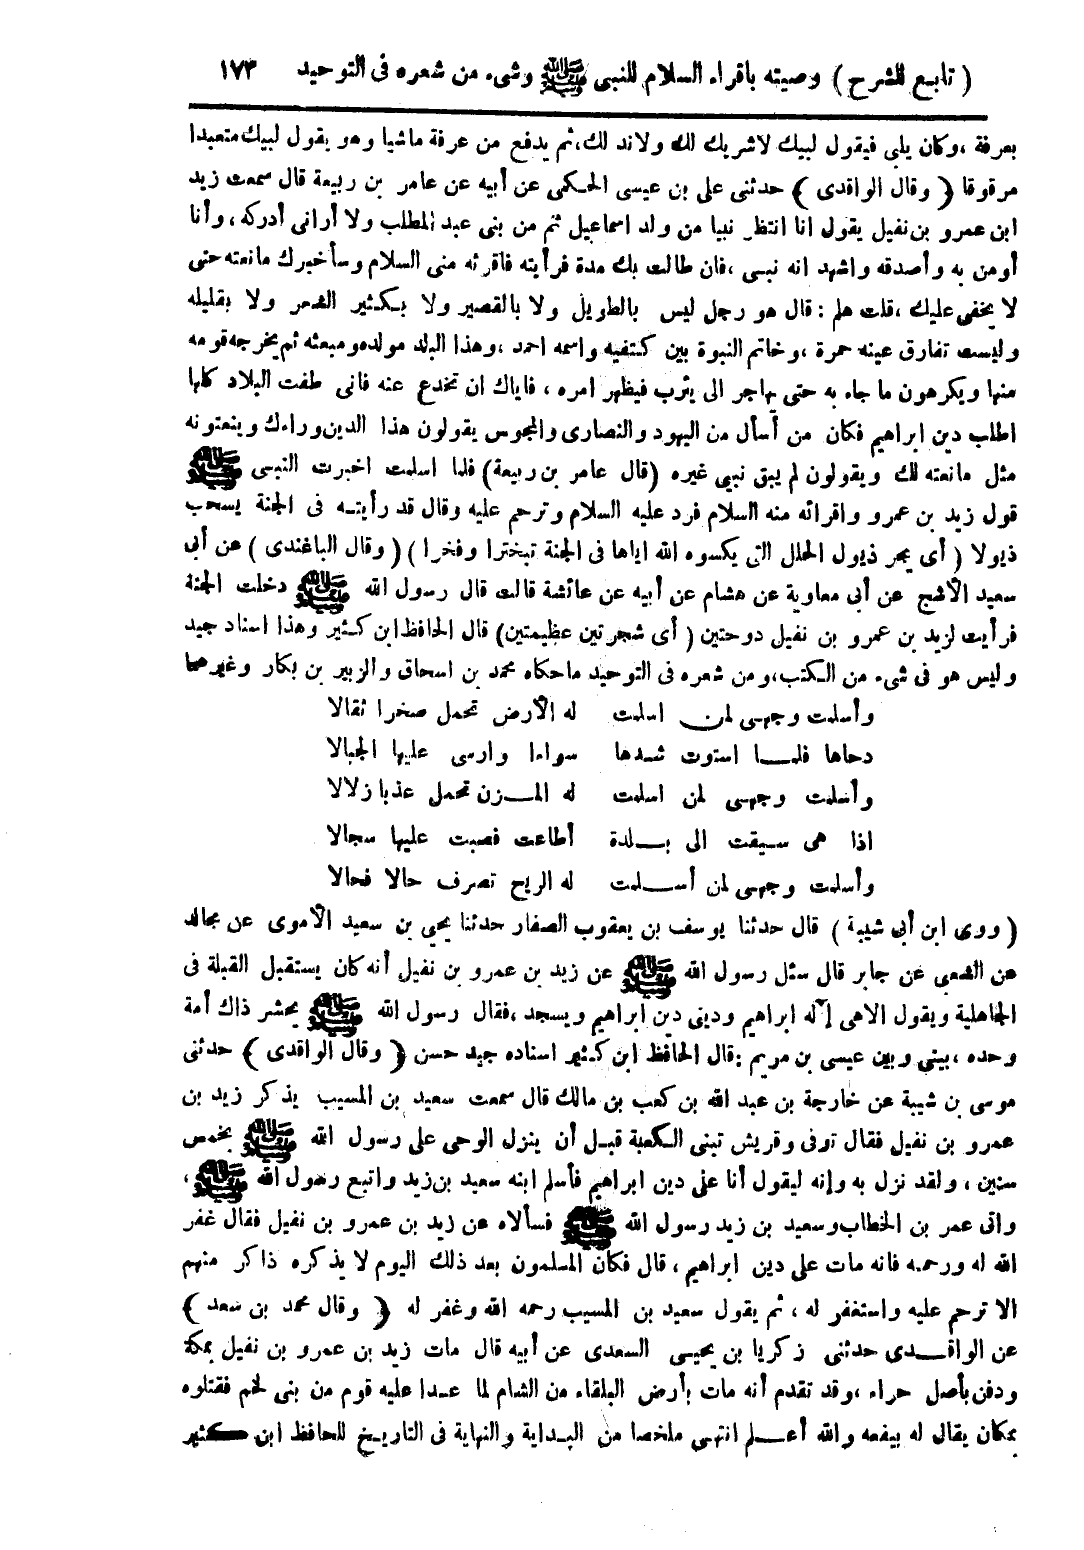 ( تابع للشرح ) وصيته باقراء السلام للنبى ﷺ وشىء من شعره فى التوحيد ١٧٣
بعرفة ،وكان يلبى فيقول لبيك لاشريك لك ولاند لك، ثم يدفع من عرفة ماشيا وهو يقول لبيك متعبدا
مرقوقا ( وقال الواقدى ) حدثنى على بن عيسى الحكمى عن أبيه عن عامر بن ربيعة قال سمعت زيد
ابن عمرو بن نفيل يقول انا انتظر نبيا من ولد اسماعيل ثم من بنى عبد المطلب ولا أرانى أدركه، وأنا
أومن به وأصدقه واشهد انه نبى ،فان طالت بك مدة فرأيته فاقرئه منى السلام وسأخبرك مانعته حتى
لا يخفى عليك ،قلت هلم : قال هو رجل ليس بالطويل ولا بالقصير ولا بكثير الشعر ولا بقليله
وليست تفارق عينه حمرة ،وخاتم النبوة بين كتفيه واسمه احمد ،وهذا البلد مولده ومبعثه ثم يخرجه قومه
منها ويكرهون ما جاء به حتى يهاجر الى يثرب فيظهر امره ، فاياك ان تخدع عنه فانى طفت البلاد كلها
اطلب دين ابراهيم فكان من أسأل من اليهود والنصارى والمجوس يقولون هذا الدين وراءك وينعتونه
مثل مانعته لك ويقولون لم يبق نبي غيره (قال عامر بن ربيعة) فلما اسلمت اخبرت النبى ﷺ
قول زيد بن عمرو واقرائه منه السلام فرد عليه السلام وترحم عليه وقال قد رأيته فى الجنة يسحب
ذيولا ( أى يجر ذيول الحلل التى يكسوه الله اياها فى الجنة تبخترا وفخرا ) ( وقال الباغندى ) عن أبى
سعيد الأشج عن أبى معاوية عن هشام عن أبيه عن عائشة قالت قال رسول الله ﷺ دخلت الجنة
فرأيت لزيد بن عمرو بن نفيل دوحتين ( أى شجرتين عظيمتين) قال الحافظ ابن كثير وهذا اسناد جيد
وليس هو فى شىء من الكتب،ومن شعره فى التوحيد ماحكاه محمد بن اسحاق والزبير بن بكار وغيرهما
وأسلمت وجهى لمن اسلمت له الأرض تحمل صخرا ثقالا
دحاها فلما استوت شدها سواءا وارسى عليها الجبالا
وأسلمت وجهى لمن اسلمت له المزن تحمل عذبا زلالا
اذا هى سيقت الى بلدة أطاعت فصبت عليها سجالا
وأسلمت وجهى لمن أسلمت له الريح تصرف حالا فحالا
( وروى ابن أبى شيبة ) قال حدثنا يوسف بن يعقوب الصفار حدثنا يحيى بن سعيد الأموى عن مجالد
عن الشعبى عن جابر قال سئل رسول الله ﷺ عن زيد بن عمرو بن نفيل أنه كان يستقبل القبلة فى
الجاهلية ويقول الاهى إله ابراهيم ودينى دين ابراهيم ويسجد ،فقال رسول الله ﷺ يحشر ذاك أمة
وحده ،بيني وبين عيسى بن مريم :قال الحافظ ابن كثير اسناده جيد حسن ( وقال الواقدى ) حدثنى
موسى بن شيبة عن خارجة بن عبد الله بن كعب بن مالك قال سمعت سعيد بن المسيب يذكر زيد بن
عمرو بن نفيل فقال توفى وقريش تبنى الكعبة قبل أن ينزل الوحى على رسول الله ﷺ بخمس
سنين ، ولقد نزل به وإنه ليقول أنا على دين ابراهيم فأسلم ابنه سعيد بن زيد واتبع رسول الله ﷺ ،
واتى عمر بن الخطاب وسعيد بن زيد رسول الله ﷺ فسألاه عن زيد بن عمرو بن نفيل فقال غفر
الله له ورحمه فانه مات على دين ابراهيم ، قال فكان المسلمون بعد ذلك اليوم لا يذكره ذاكر منهم
الا ترحم عليه واستغفر له ، ثم يقول سعيد بن المسيب رحمه الله وغفر له ( وقال محمد بن سعد )
عن الواقدى حدثنى زكريا بن يحيى السعدى عن أبيه قال مات زيد بن عمرو بن نفيل بمكة
ودفن بأصل حراء ،وقد تقدم أنه مات بأرض البلقاء من الشام لما عدا عليه قوم من بنى لخم فقتلوه
بمكان يقال له بيفعه والله أعلم انتهى ملخصا من البداية والنهاية فى التاريخ للحافظ ابن كثير